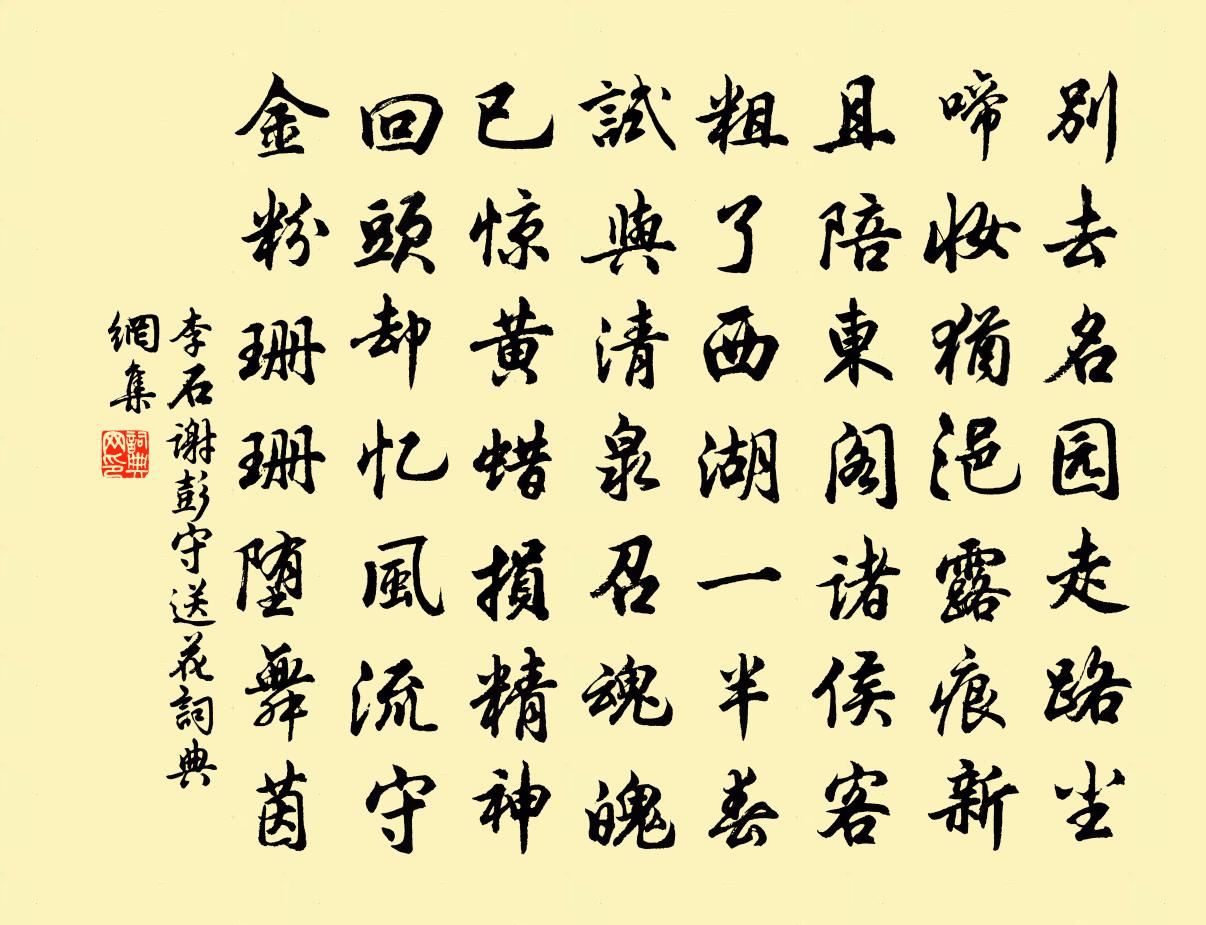 别去名园走路尘
啼妆犹浥露痕新
且陪東阁诸侯客
粗了西湖一半春
試與清泉召魂魄
已惊黄蜡損精神
回頭却忆風流守
金粉珊珊堕舞茵
李石谢彭守送花詞典
網集
詞典
网印